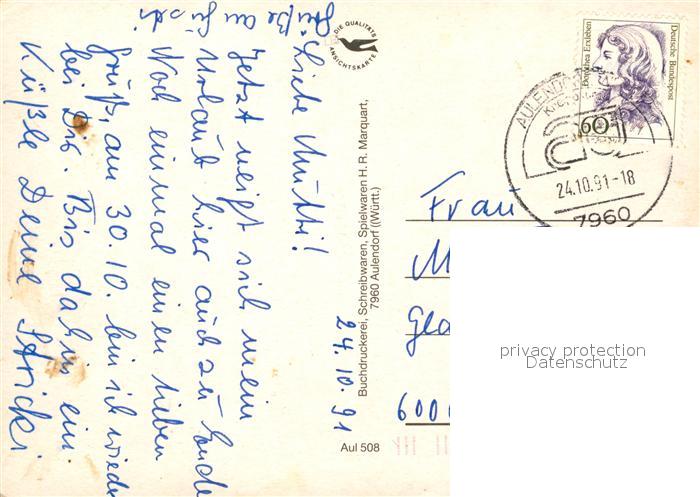 Grüße an Füssli
24.10.91
Liebe Mutti!
Jetzt neigt sich mein
Urlaub hier auch zu Ende
Noch einmal einen lieben
Gruß, am 30.10. bin ich wieder
bei Dir. Bis dahin ein
Küßle Deine
DIE QUALITÄTS
ANSICHTSKARTE
Buchdruckerei, Schreibwaren, Spielwaren H. R. Marquart,
7960 Aulendorf (Württ.)
Aul 508
Dorothea Erxleben
Deutsche Bundespost
60
AULENDORF
24.10.91-18
7960
Frau
M
Gla
600
privacy protection
Datenschutz